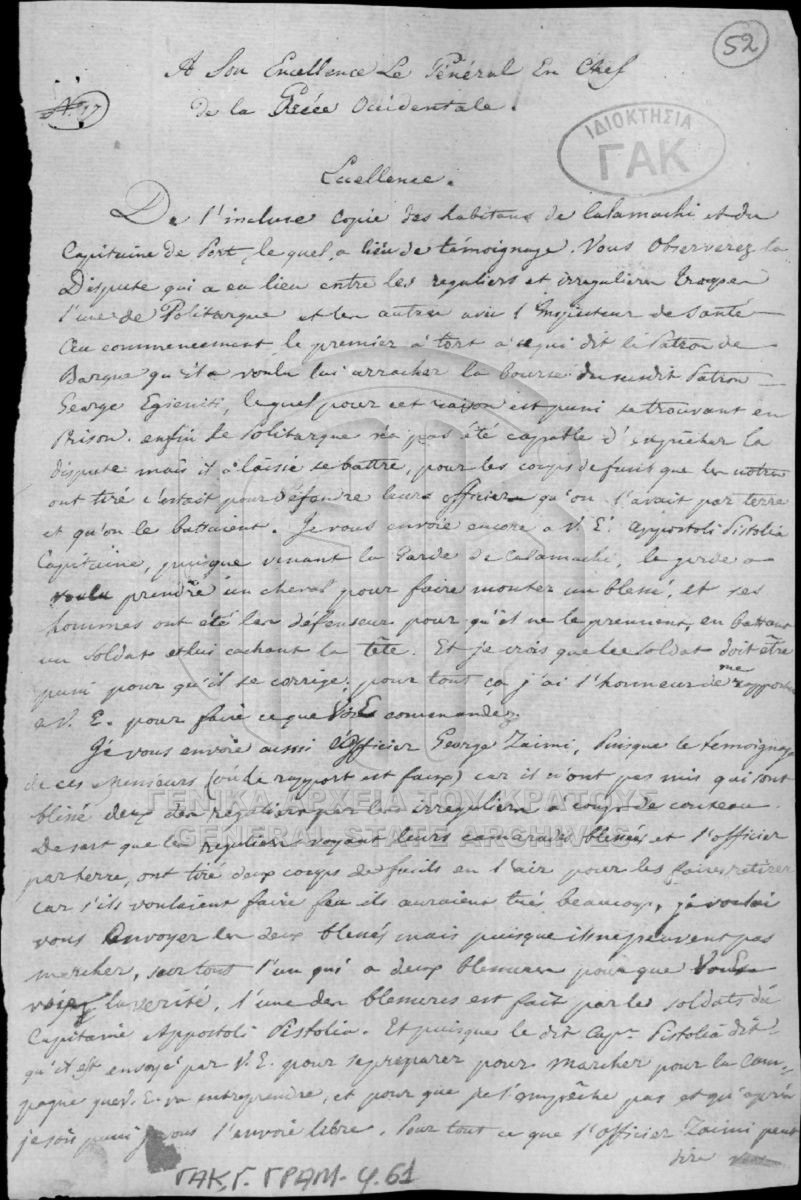 52
A Son Excellence Le Général En Chef
de la Grèce Occidentale.
No. 17
ΙΔΙΟΚΤΗΣΙΑ
ΓΑΚ
Excellence.
De l'incluse Copie des habitans de Calamachi et du
Capitaine de Port, le quel, a lieu de témoignage. Vous Observerez la
Dispute qui a eu lieu entre les reguliers et irreguliers troupes
l'une de Politarque et les autres avec l'Inspecteur de Santé
Au commencement le premier a tort a ce qui dit le Patron de
Barque qu'il a voulu lui arracher la bourse du susdit Patron
George Egieniti, le quel pour cet raison est puni se trouvant en
Prison. enfin le Politarque n'a pas été capable d'empêcher la
dispute mais il a laissé se battre, pour les coups de fusils que les notres
ont tiré c'etait pour défendre leurs officiers qu'on l'avait par terre
et qu'on le battaient. Je vous envoie encore a V. E. Appostoli Pistolia
Capitaine, puisque venant la Garde de Calamachi, le garde a
voulu prendre un cheval pour faire monter un blessé, et ses
hommes ont été les défenseur pour qu'il ne le prennent, en battant
un soldat et lui cachant la tête. Et je crois que le soldat doit être
puni pour qu'il se corrige; pour tout ça j'ai l'honneur de me rapporter
a V. E. pour faire ce que V. E. comendez.
Je vous envoie aussi l'Officier George Zaimi, Puisque le témoignage
de ces Messieurs (où le rapport est faux) car il n'ont pas mis qui sont
blessé deux des reguliers par les irreguliers a coups de couteau.
De sort que les reguliers voyant leurs camarades blessés et l'officier
par terre, ont tiré deux coups de fusils en l'air pour les faires retirer
car s'ils voulaient faire feu ils auraient tués beaucoup, je voulai
vous Envoyer les deux blessés mais puisque ils ne peuvent pas
marcher, sur tout l'un qui a deux blessures pour que Vous
voiez la verité, l'une des blessures est fait par le soldats du
Capitaine Appostoli Pistolia. Et puisque le dit Capn. Pistolia dit
qu'il est envoyé par V. E. pour se preparer pour marcher pour la Cam-
pagne que V. E. va entreprendre, et pour que je l'empêche pas et qu'après
je sois puni je vous l'envoie libre. Pour tout ce que l'Officier Zaimi peut
dire
ΓΕΝΙΚΑ ΑΡΧΕΙΑ ΤΟΥ ΚΡΑΤΟΥΣ
GENERAL STATE ARCHIVES
ΓΑΚ, Γ. ΓΡΑΜ-φ. 61